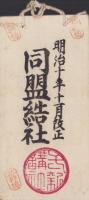 明治十年十月改正
同盟結社